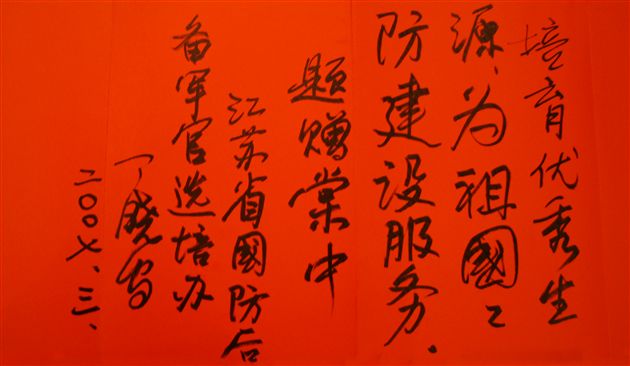 培育优秀生
源、为祖国々
防建设服务.
题赠棠中
江苏省国防后
备军官选培办
丁晓安
二〇〇七、三、